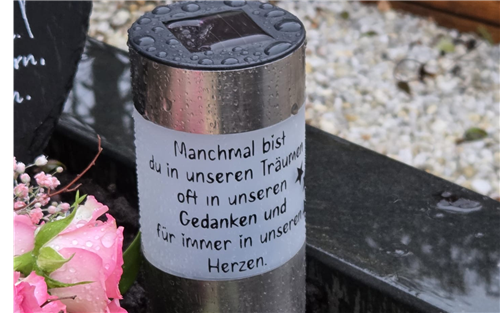 ern.
n.
Manchmal bist
du in unseren Träumen
oft in unseren
Gedanken und
für immer in unseren
Herzen.